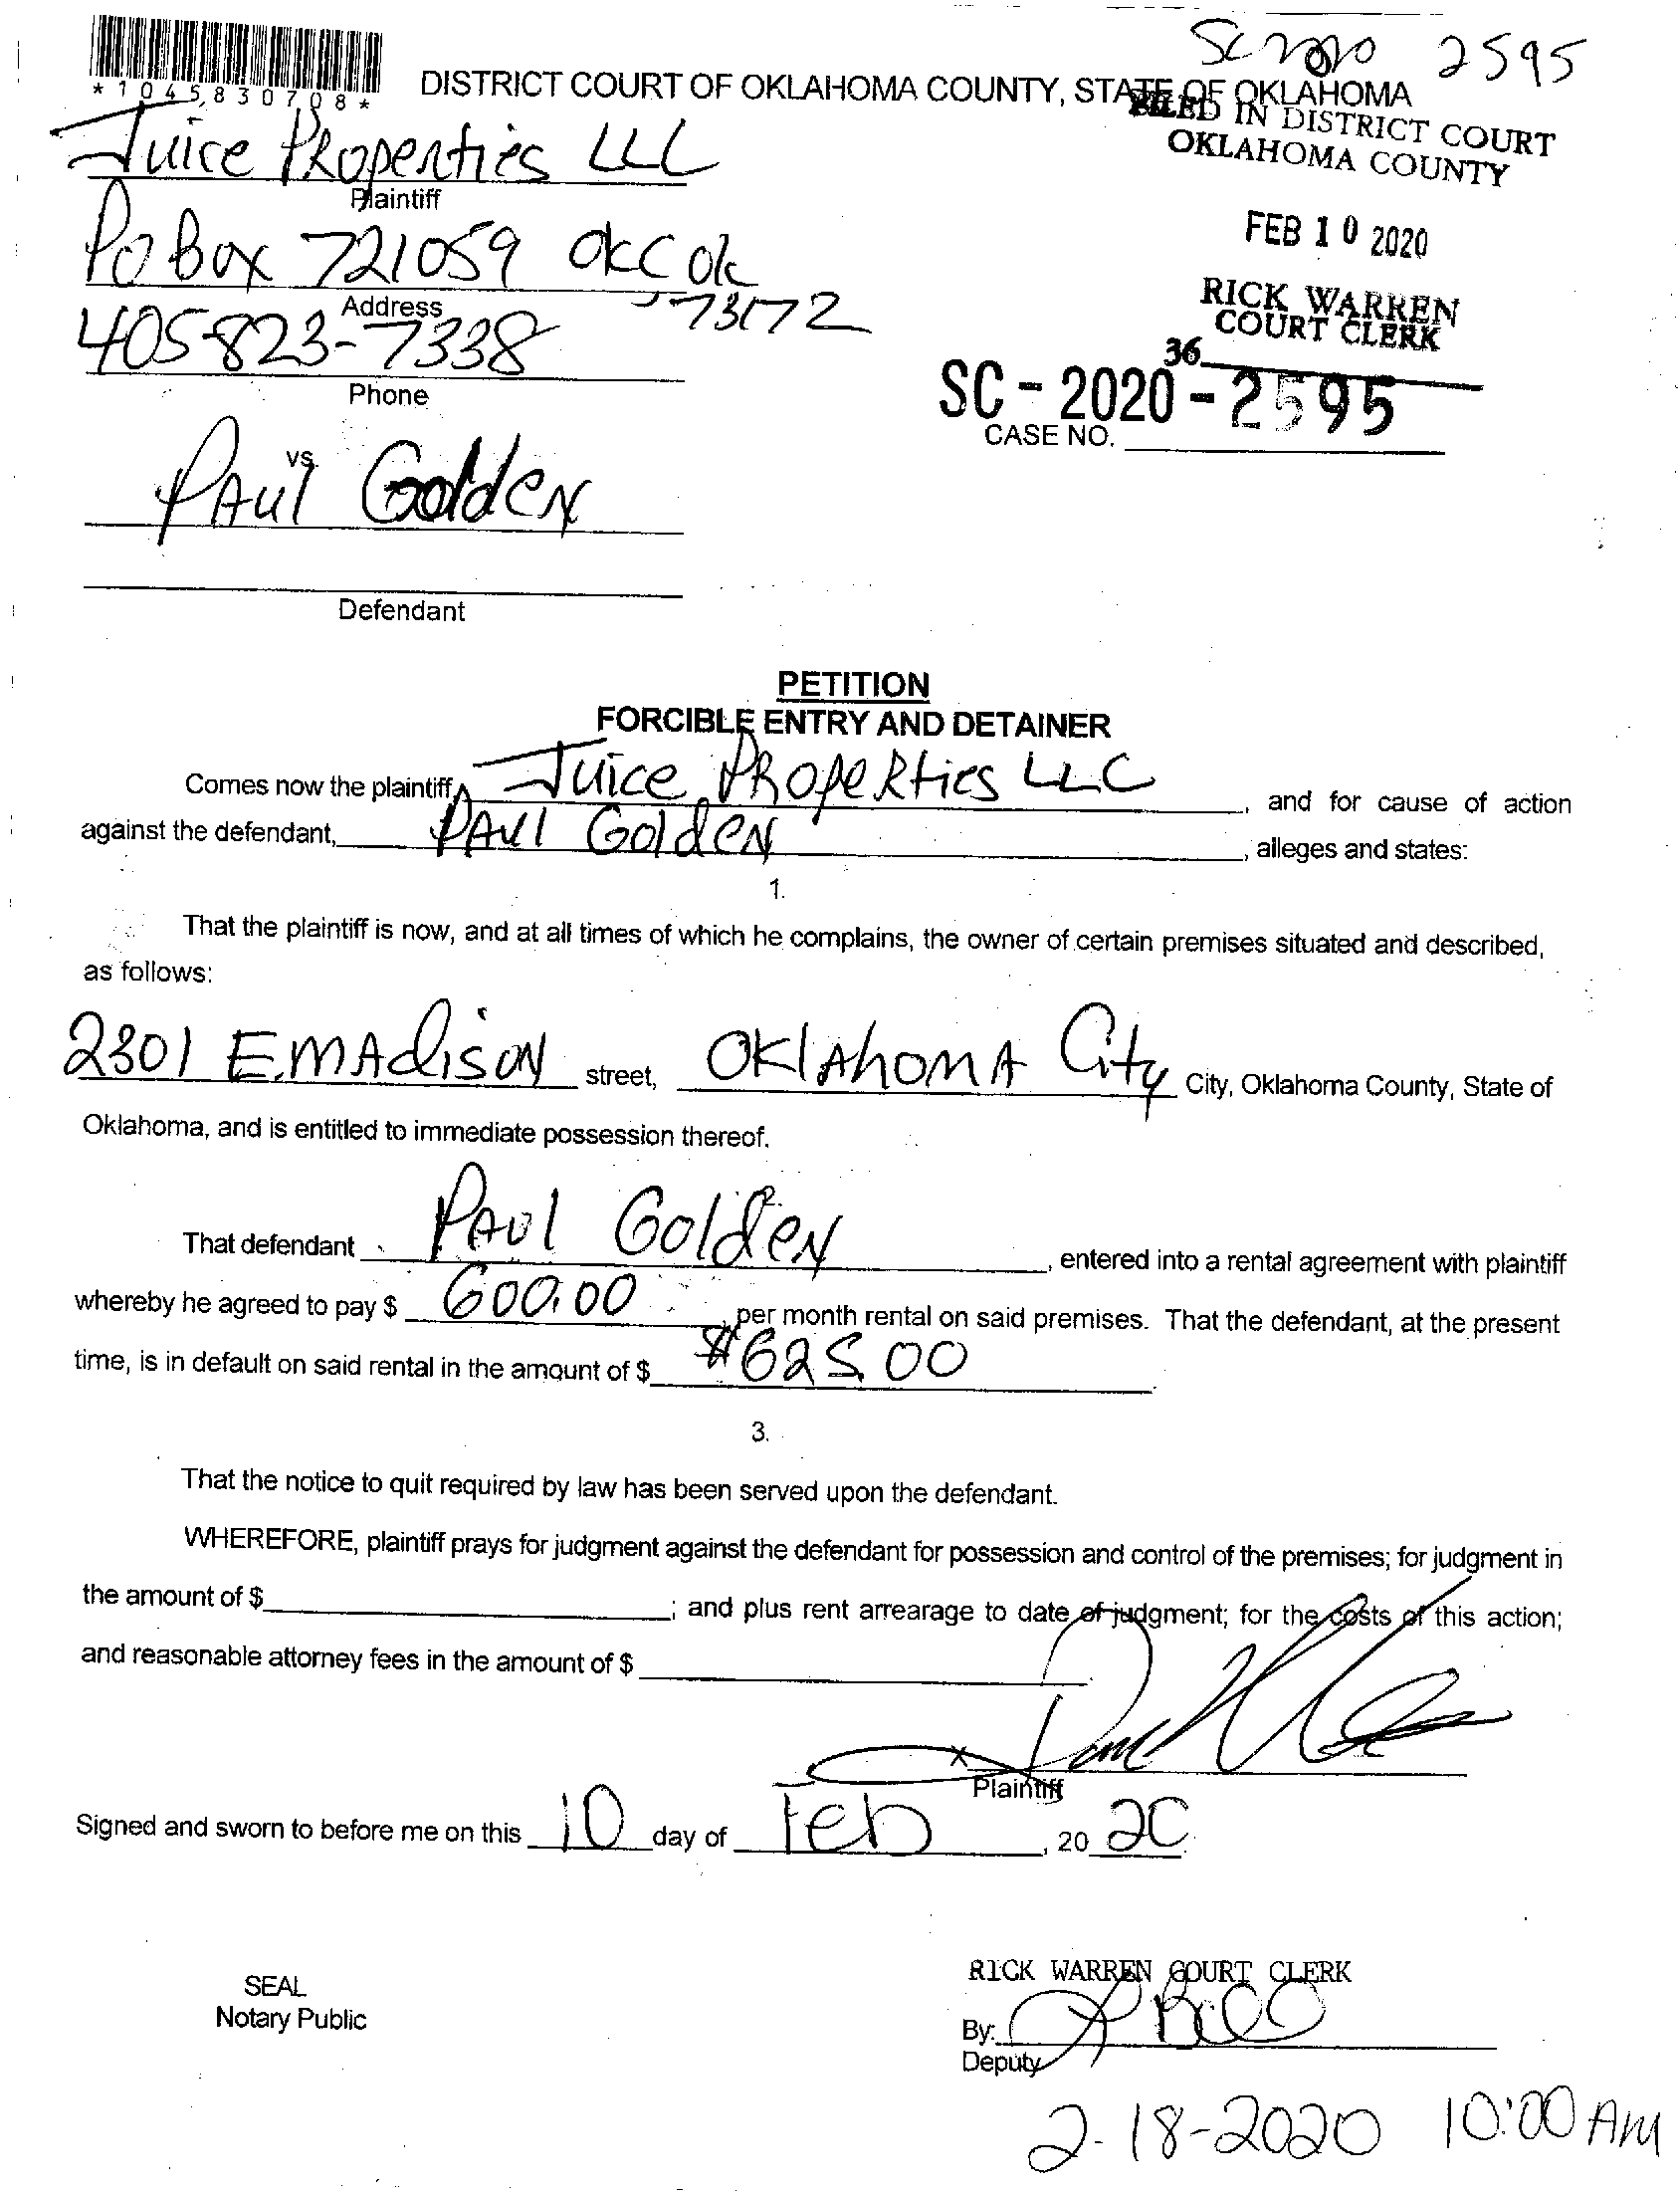 SC 2020 2595
*1045830708*
DISTRICT COURT OF OKLAHOMA COUNTY, STATE OF OKLAHOMA
FILED IN DISTRICT COURT
OKLAHOMA COUNTY
Juice Properties LLC
Plaintiff
PO Box 721059 OKC OK
73172
Address
405-823-7338
Phone
FEB 10 2020
RICK WARREN
COURT CLERK
36
SC - 2020 - 2595
CASE NO.
vs.
Paul Golden
Defendant
PETITION
FORCIBLE ENTRY AND DETAINER
Comes now the plaintiff, Juice Properties LLC, and for cause of action
against the defendant, Paul Golden, alleges and states:
1.
That the plaintiff is now, and at all times of which he complains, the owner of certain premises situated and described,
as follows:
2301 E. Madison street, Oklahoma City City, Oklahoma County, State of
Oklahoma, and is entitled to immediate possession thereof.
2.
That defendant Paul Golden, entered into a rental agreement with plaintiff
whereby he agreed to pay $ 600.00 per month rental on said premises. That the defendant, at the present
time, is in default on said rental in the amount of $ $625.00
3.
That the notice to quit required by law has been served upon the defendant.
WHEREFORE, plaintiff prays for judgment against the defendant for possession and control of the premises; for judgment in
the amount of $ ; and plus rent arrearage to date of judgment; for the costs of this action;
and reasonable attorney fees in the amount of $
X
Plaintiff
Signed and sworn to before me on this 10 day of Feb, 20 20
SEAL
Notary Public
RICK WARREN COURT CLERK
By:
Deputy
2-18-2020 10:00 AM